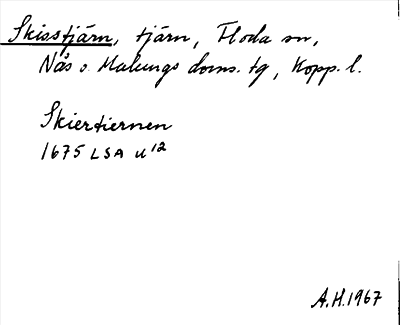 Skisstjärn, tjärn, Floda sn,
Nås o. Malungs doms. tg, Kopp. l.
Skiertiernen
1675 LSA U12
A.H. 1967